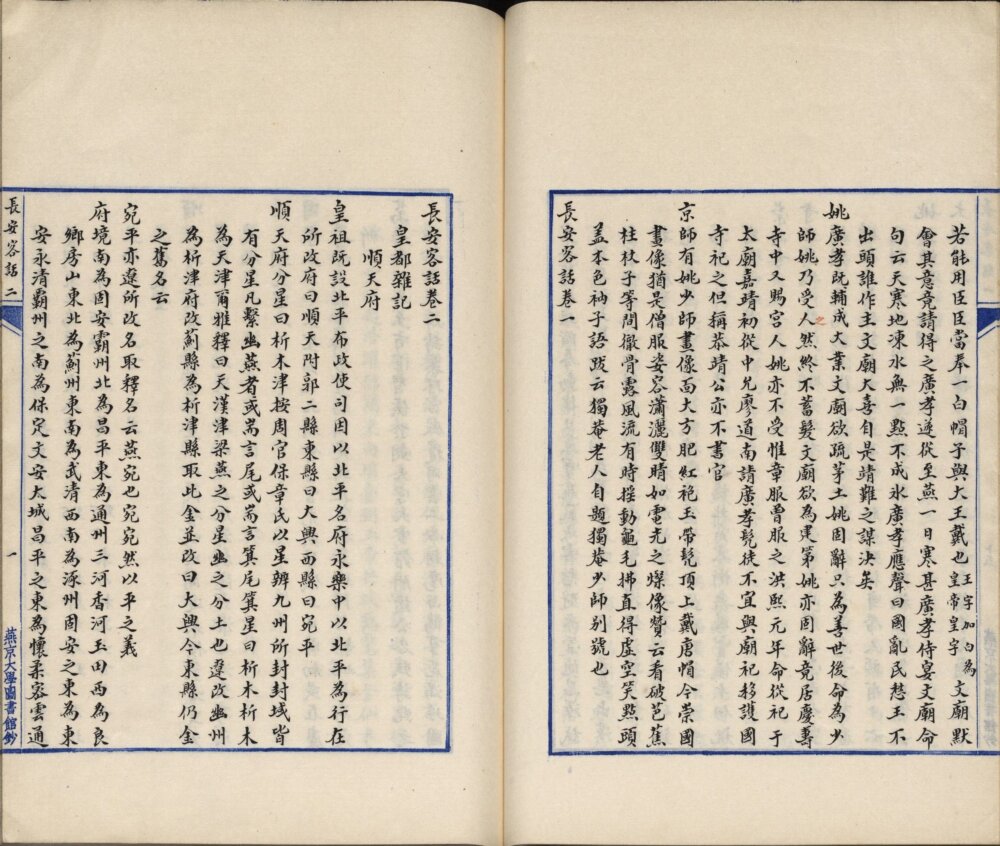 若能用臣臣當奉一白帽子與大王戴也王字加白為皇帝皇字文廟默
會其意竟請得之廣孝遂從至燕一日寒甚廣孝侍宴文廟命
句云天寒地凍水無一點不成氷廣孝應聲曰國亂民愁王不
出頭誰作主文廟大喜自是靖難之謀決矣
姚廣孝既輔成大業文廟欲疏茅土姚固辭只為善世後命為少
師姚乃受之人然終不蓄髮文廟欲為建第姚亦固辭竟居慶壽
寺中又賜宮人姚亦不受惟章服曽服之洪熙元年命從祀于
太廟嘉靖初從中允廖道南請廣孝髡徒不宜與廟祀移護國
寺祀之但稱恭靖公亦不書官
京師有姚少師畫像面大方肥紅袍玉帶髡頂上戴唐帽今崇國
畫像猶是僧服姿容瀟灑雙睛如電光之爍像贊云看破芭蕉
柱杖子等閒徹骨露風流有時揺動龜毛拂直得虛空笑點頭
盖本色衲子語跋云獨菴老人自題獨菴少師别號也
長安客話卷一
長安客話卷二
皇都雜記
順天府
皇祖既設北平布政使司因以北平名府永樂中以北平為行在
所改府曰順天附郭二縣東縣曰大興西縣曰宛平
順天府分星曰析木津按周官保章氏以星辨九州所封封域皆
有分星凡繫幽燕者或耑言尾或耑言箕尾箕星曰析木析木
為天津爾雅釋曰天漢津梁燕之分星幽之分土也遼改幽州
為析津府改薊縣為析津縣取此金並改曰大興今東縣仍金
之舊名云
宛平亦遼所改名取釋名云燕宛也宛宛然以平之義
府境南為固安霸州北為昌平東為通州三河香河玉田西為良
鄉房山東北為薊州東南為武清西南為涿州固安之東為東
安永清霸州之南為保定文安大城昌平之東為懷柔密雲通
長安客話二
一
燕京大學圖書館鈔